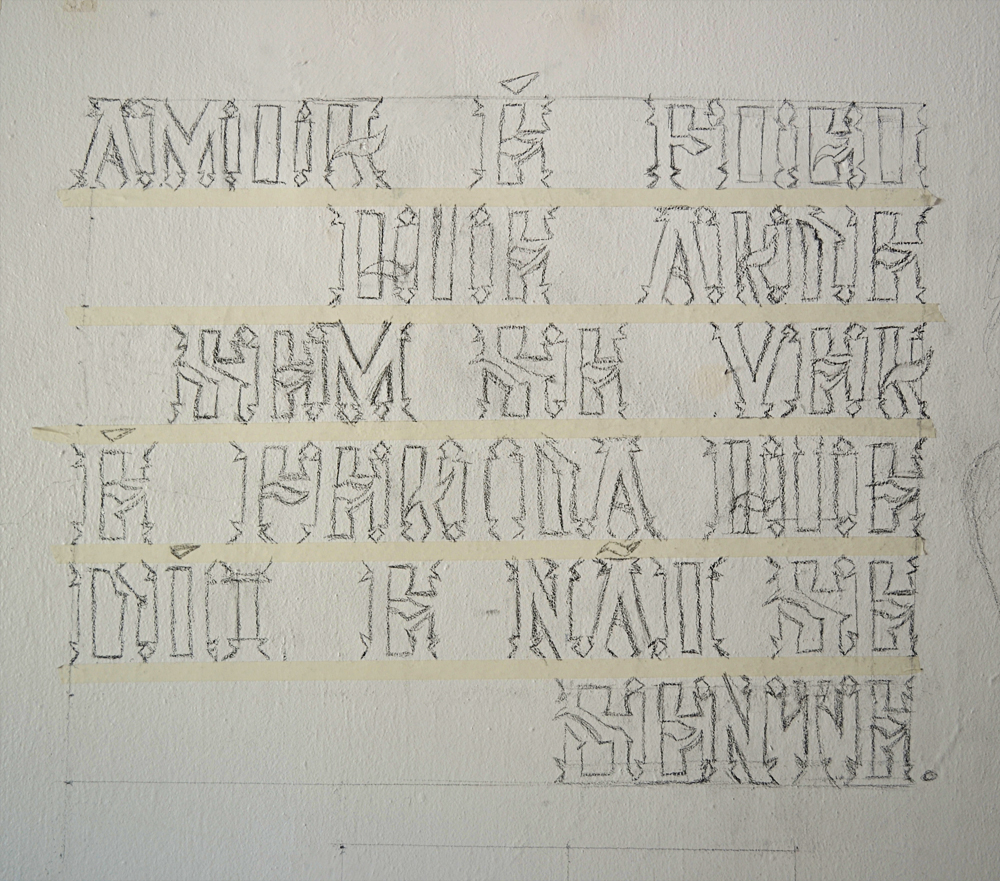 AMOR É FOGO
QUE ARDE
SEM SE VER
É FERIDA QUE
DÓI E NÃO SE
SENTE.